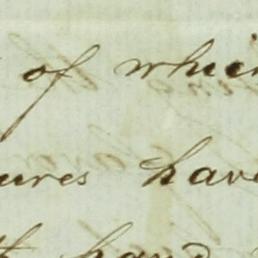 of which
ures have
th hand